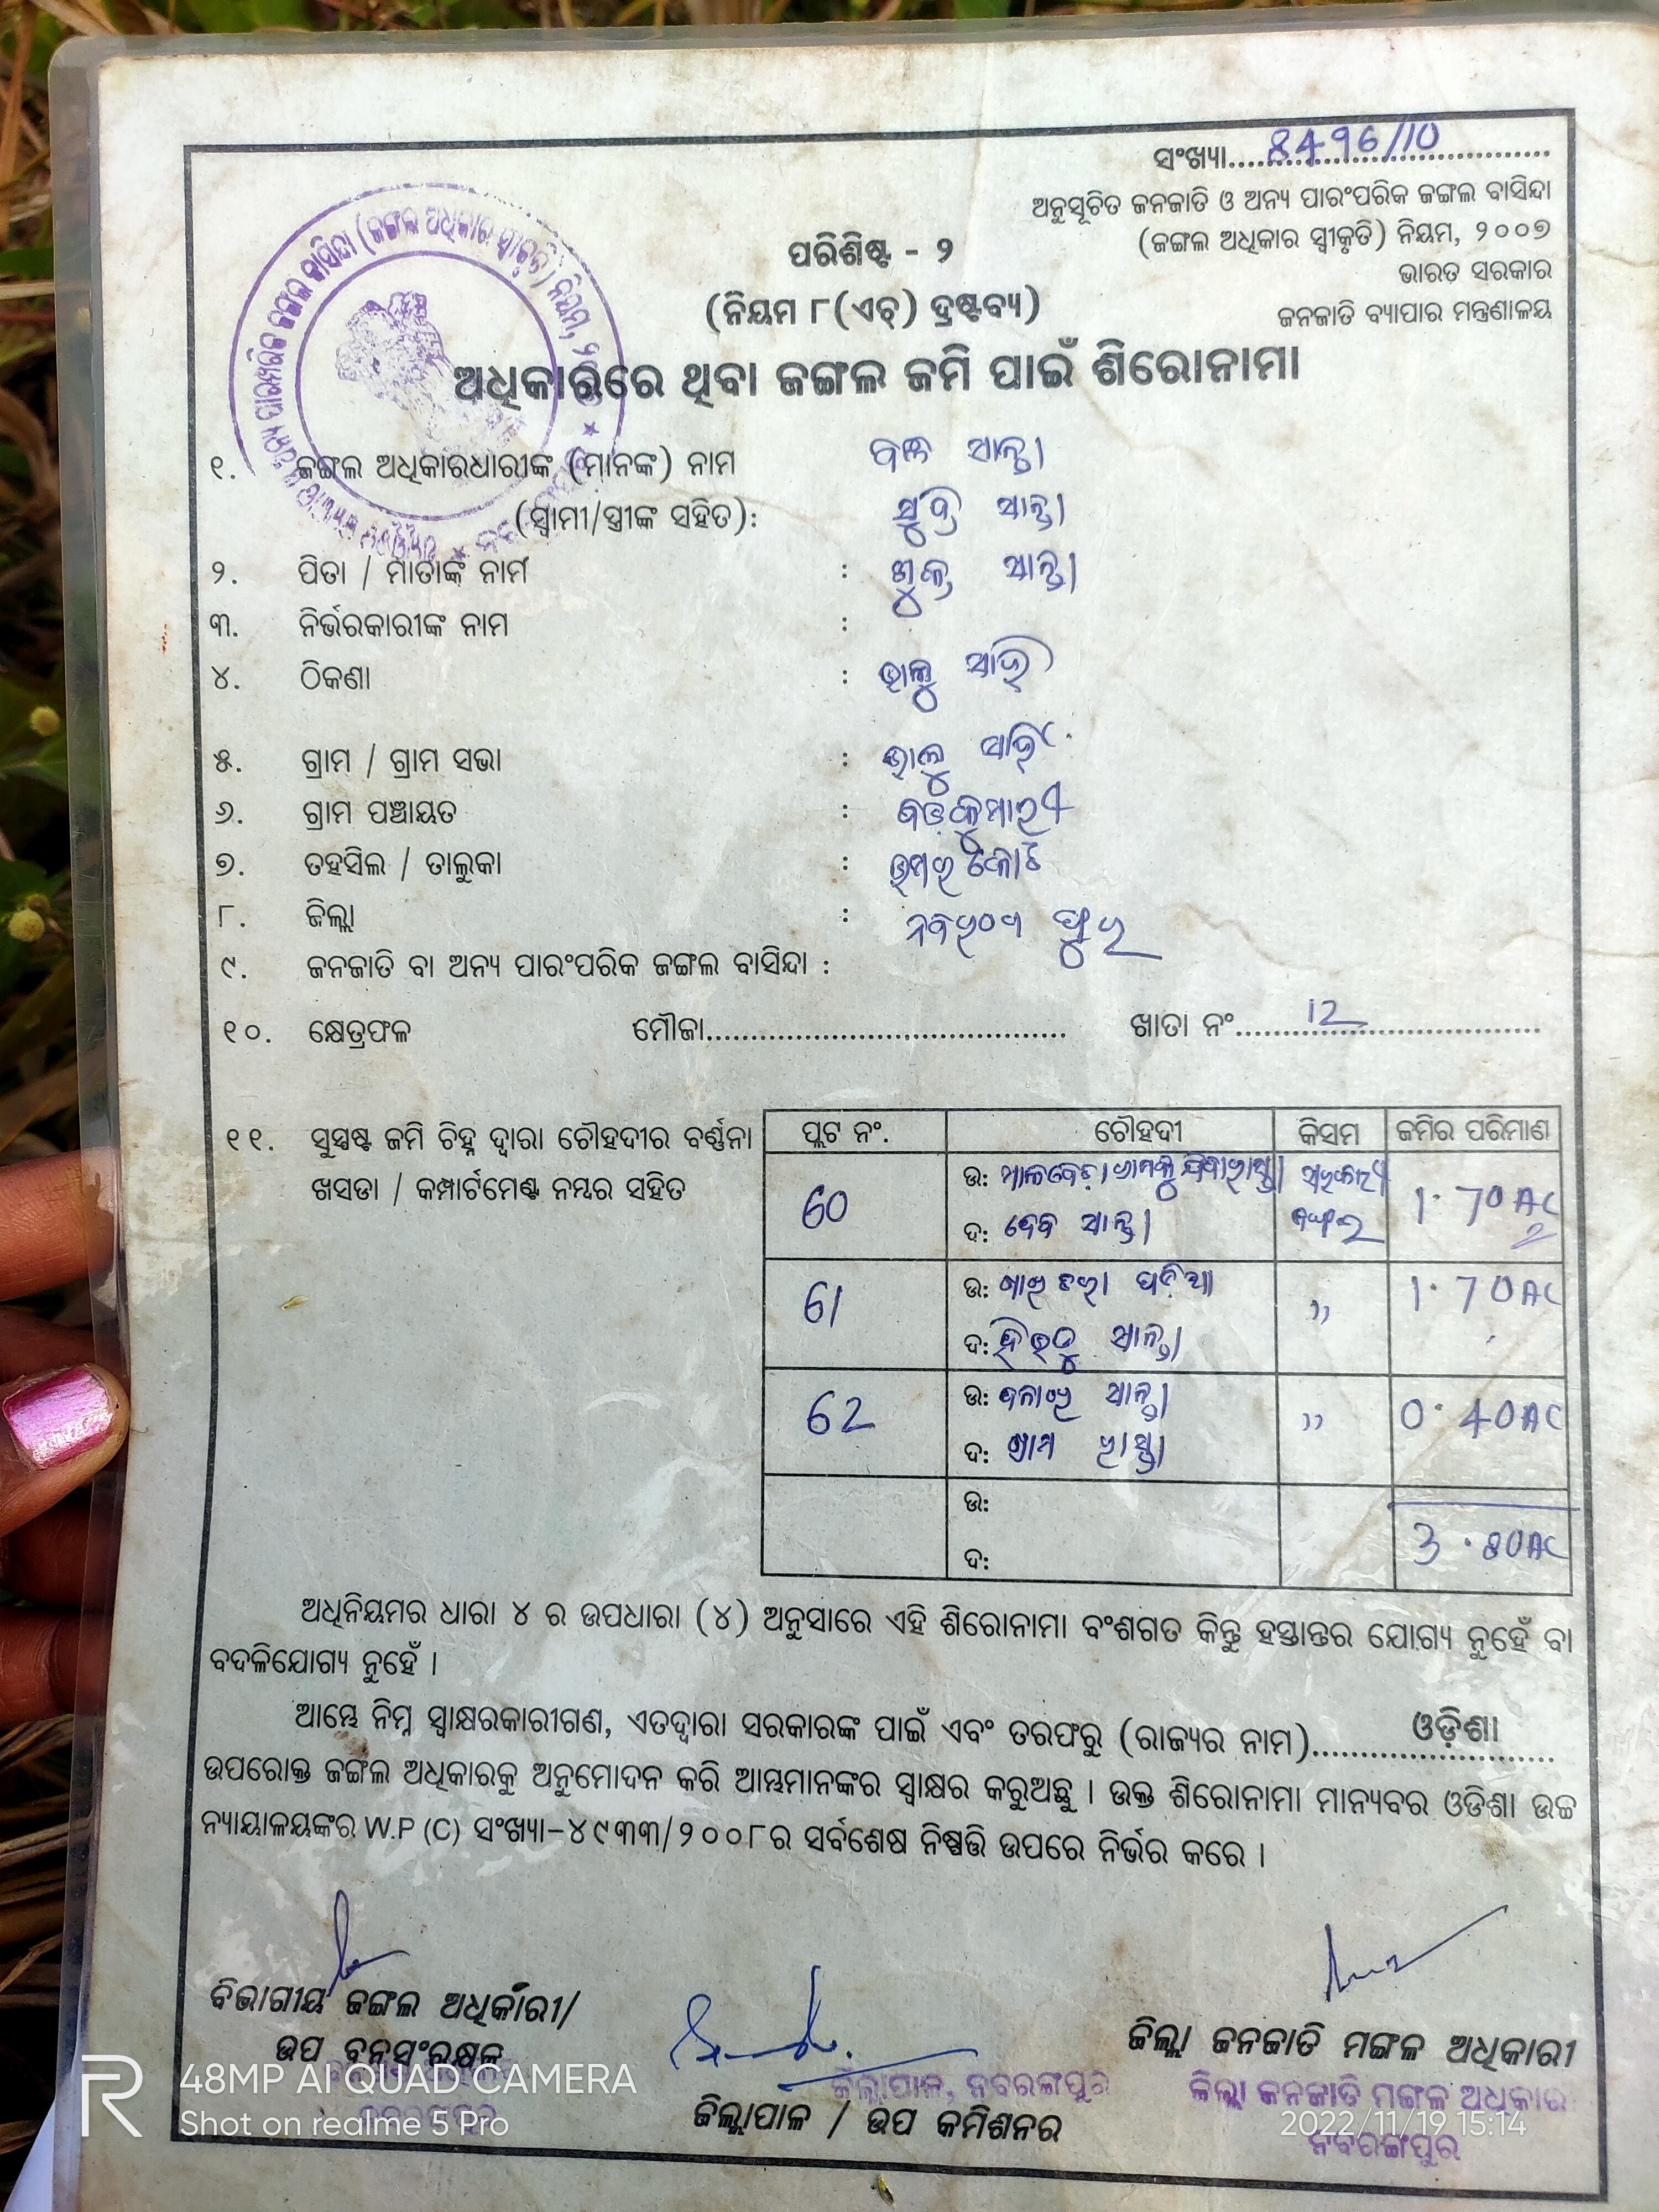 ସଂଖ୍ୟା.... 8496/10
ଅନୁସୂଚିତ ଜନଜାତି ଓ ଅନ୍ୟ ପାରଂପରିକ ଜଙ୍ଗଲ ବାସିନ୍ଦା
(ଜଙ୍ଗଲ ଅଧିକାର ସ୍ୱୀକୃତି) ନିୟମ, ୨୦୦୭
ଭାରତ ସରକାର
ଜନଜାତି ବ୍ୟାପାର ମନ୍ତ୍ରଣାଳୟ
ପରିଶିଷ୍ଟ - ୨
(ନିୟମ ୮(ଏଚ୍) ଦ୍ରଷ୍ଟବ୍ୟ)
ଅଧିକାରରେ ଥିବା ଜଙ୍ଗଲ ଜମି ପାଇଁ ଶିରୋନାମା
୧. ଜଙ୍ଗଲ ଅଧିକାରଧାରୀଙ୍କ (ମାନଙ୍କ) ନାମ ସାନ୍ତା
(ସ୍ୱାମୀ/ସ୍ତ୍ରୀଙ୍କ ସହିତ): ସାନ୍ତା
୨. ପିତା / ମାତାଙ୍କ ନାମ : ସାନ୍ତା
୩. ନିର୍ଭରକାରୀଙ୍କ ନାମ :
୪. ଠିକଣା :
୫. ଗ୍ରାମ / ଗ୍ରାମ ସଭା :
୬. ଗ୍ରାମ ପଞ୍ଚାୟତ : ବଡ଼କୁମାରୀ
୭. ତହସିଲ / ତାଲୁକା : ଉମରକୋଟ
୮. ଜିଲ୍ଲା : ନବରଙ୍ଗ ପୁର
୯. ଜନଜାତି ବା ଅନ୍ୟ ପାରଂପରିକ ଜଙ୍ଗଲ ବାସିନ୍ଦା :
୧୦. କ୍ଷେତ୍ରଫଳ ମୌଜା.... ଖାତା ନଂ.... 12
୧୧. ସୁସ୍ପଷ୍ଟ ଜମି ଚିହ୍ନ ଦ୍ୱାରା ଚୌହଦୀର ବର୍ଣ୍ଣନା
ଖସଡା / କମ୍ପାର୍ଟମେଣ୍ଟ ନମ୍ବର ସହିତ
ପ୍ଲଟ ନଂ. ଚୌହଦୀ କିସମ ଜମିର ପରିମାଣ
60 ଉ: ସରକାରୀ 1.70 AC
ଦ: ଦେବ ସାନ୍ତା ଜଙ୍ଗଲ
61 ଉ: ପଡ଼ିଆ " 1.70 AC
ଦ: ସାନ୍ତା
62 ଉ: ସାନ୍ତା " 0.40 AC
ଦ: ରାସ୍ତା
ଉ:
ଦ: 3.80 AC
ଅଧିନିୟମର ଧାରା ୪ ର ଉପଧାରା (୪) ଅନୁସାରେ ଏହି ଶିରୋନାମା ବଂଶଗତ କିନ୍ତୁ ହସ୍ତାନ୍ତର ଯୋଗ୍ୟ ନୁହେଁ ବା
ବଦଳିଯୋଗ୍ୟ ନୁହେଁ ।
ଆମ୍ଭେ ନିମ୍ନ ସ୍ୱାକ୍ଷରକାରୀଗଣ, ଏତଦ୍ୱାରା ସରକାରଙ୍କ ପାଇଁ ଏବଂ ତରଫରୁ (ରାଜ୍ୟର ନାମ).... ଓଡ଼ିଶା
ଉପରୋକ୍ତ ଜଙ୍ଗଲ ଅଧିକାରକୁ ଅନୁମୋଦନ କରି ଆମ୍ଭମାନଙ୍କର ସ୍ୱାକ୍ଷର କରୁଅଛୁ । ଉକ୍ତ ଶିରୋନାମା ମାନ୍ୟବର ଓଡିଶା ଉଚ୍ଚ
ନ୍ୟାୟାଳୟଙ୍କର W.P (C) ସଂଖ୍ୟା-୪୯୩୩/୨୦୦୮ର ସର୍ବଶେଷ ନିଷ୍ପତ୍ତି ଉପରେ ନିର୍ଭର କରେ ।
ବିଭାଗୀୟ ଜଙ୍ଗଲ ଅଧିକାରୀ/
ଉପ ବନସଂରକ୍ଷକ
ଜିଲ୍ଲାପାଳ, ନବରଙ୍ଗପୁର
ଜିଲ୍ଲାପାଳ / ଉପ କମିଶନର
ଜିଲ୍ଲା ଜନଜାତି ମଙ୍ଗଳ ଅଧିକାରୀ
ଜିଲ୍ଲା ଜନଜାତି ମଙ୍ଗଳ ଅଧିକାରୀ
ନବରଙ୍ଗପୁର
48MP AI QUAD CAMERA
Shot on realme 5 Pro
2022/11/19 15:14